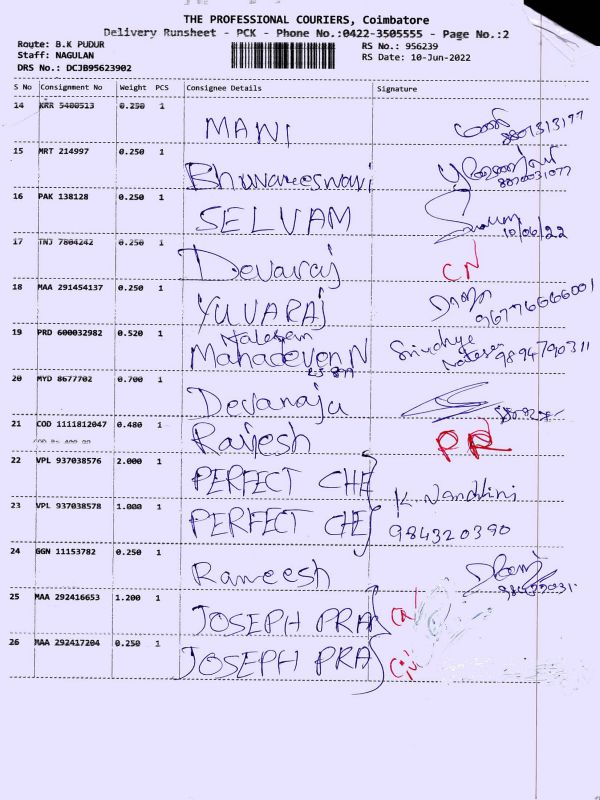 THE PROFESSIONAL COURIERS, Coimbatore
Delivery Runsheet - PCK - Phone No.:0422-3505555 - Page No.:2
Route: B.K PUDUR
RS No.: 956239
Staff: NAGULAN
RS Date: 10-Jun-2022
DRS No.: DCJB95623902
S No Consignment No Weight PCS Consignee Details Signature
14 KRR 5400513 0.250 1 MANI
15 MRT 214997 0.250 1 Bhuvaneeswari
16 PAK 138128 0.250 1 SELVAM 10/06/22
17 TNJ 7804242 0.250 1 Devaraj CN
18 MAA 291454137 0.250 1 YUVARAJ
19 PRD 600032982 0.520 1 Natesan Mahadevan N 9894790311
20 MYD 8677702 0.700 1 Devaraju
21 COD 1111812047 0.480 1 Rajesh PR
22 VPL 937038576 2.000 1 PERFECT CHE K. Nandhini
23 VPL 937038578 1.000 1 PERFECT CHE 984320390
24 GGN 11153782 0.250 1 Rameesh
25 MAA 292416653 1.200 1 JOSEPH PRA CN
26 MAA 292417204 0.250 1 JOSEPH PRA CN